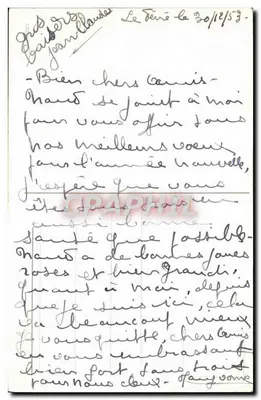 gros
baisers
Jean Claude
Le 30/12/53.
- Bien chers amis -
se joint à moi
pour vous offrir tous
nos meilleurs voeux
pour l'année nouvelle,
j'espère que vous
êtes tous en
santé que possible -
a de bonnes joues
roses et bien grandi,
quant à moi, depuis
que je suis ici, cela
va beaucoup mieux
Je vous quitte, chers amis
en vous embrassant
bien fort tous trois
pour nous deux -